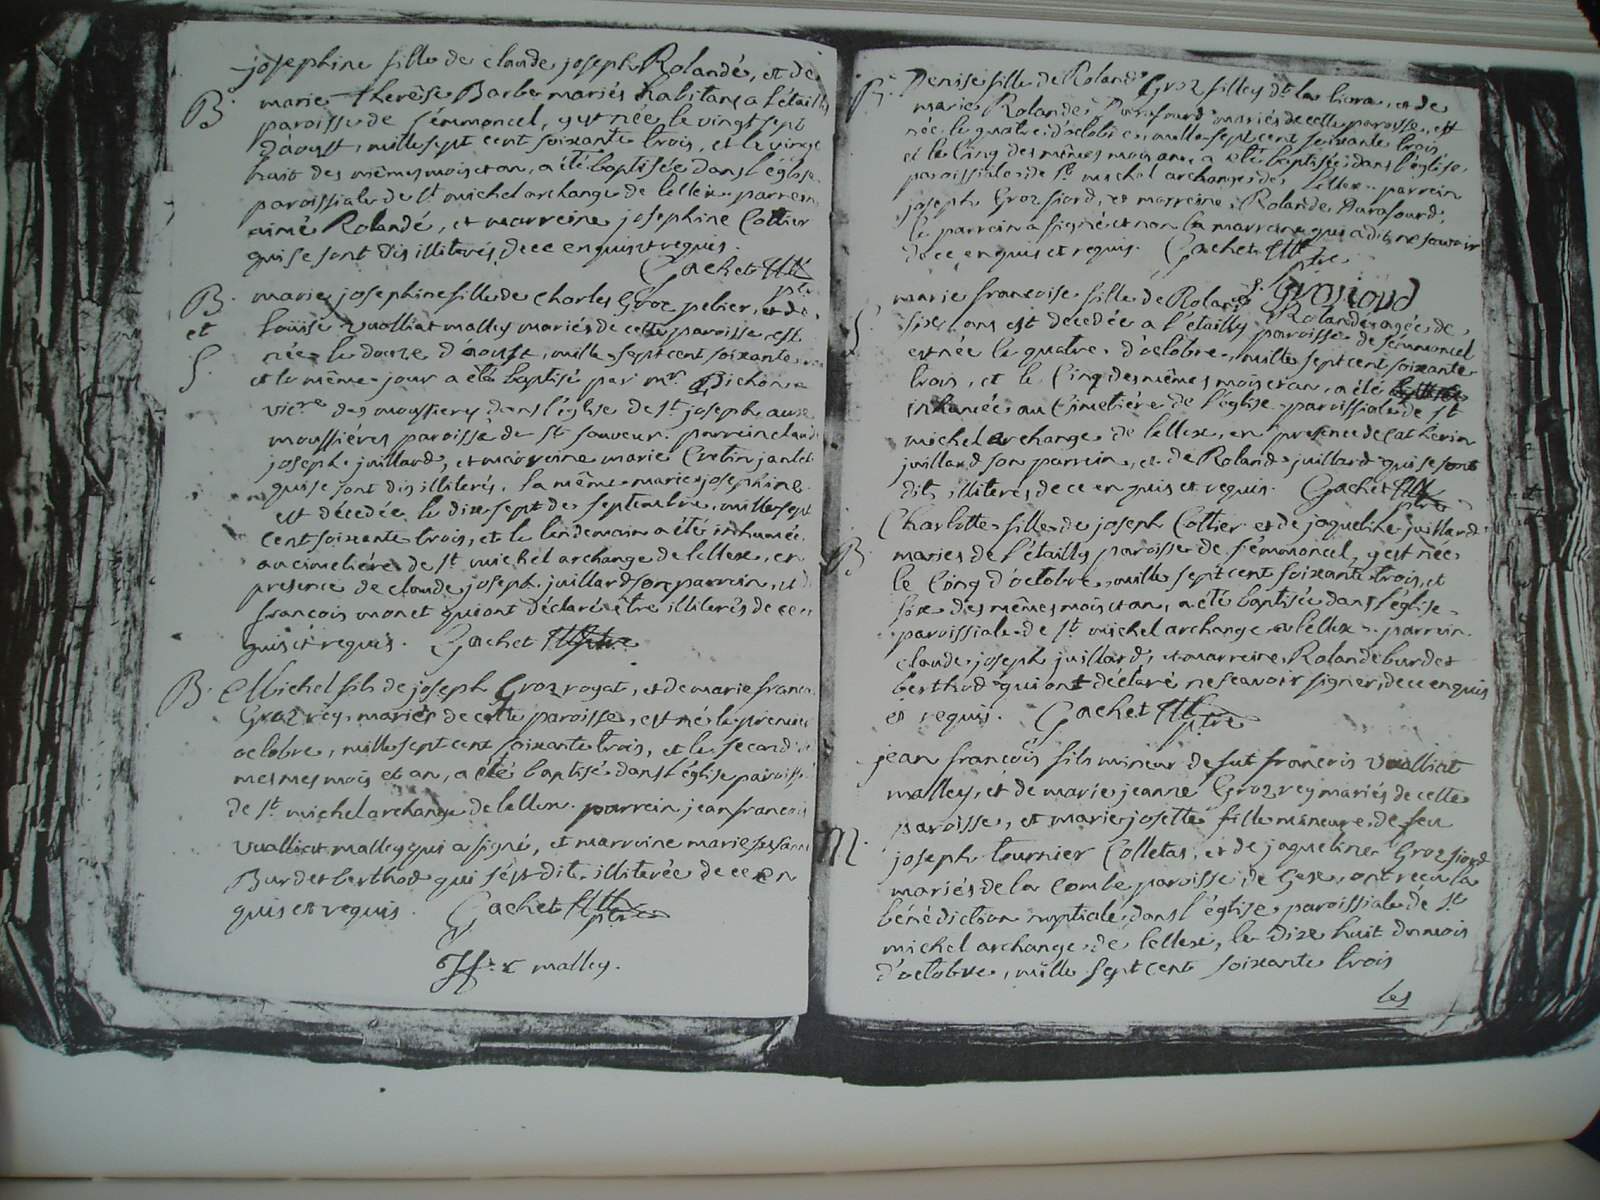 josephine fille de claude joseph Rolandé, et de
B. marie therèse Barbe mariés habitans a l'étailly
paroisse de sémmoncel, y est née le vingt sept
d'aoust, mille sept cent soixante trois, et le vingt
huit des mêmes mois et an, a été baptisée dans l'église
paroissiale de st michel archange de lellex. parrein
aimé Rolandé, et marreine josephine Cottier
qui se sont dis illiterés, de ce enquis et requis.
Gachet ptre
B. marie josephine fille de charles Groz pelier, et de
et Louise vualliat malley mariés de cette paroisse est
née le douze d'aoust, mille sept cent soixante
S. et le même jour a été baptisé par mr. Bichon
vicre des moussiery dans l'église de st joseph aux
moussiéres paroisse de st sauveur. parrein claude
joseph juillard, et marreine marie
qui se sont dis illiterés. la même marie josephine
est décedée le dix sept de septembre, mille sept
cent soixante trois, et le lendemain a été inhumée
au cimetiére de st michel archange de lellex, en
presence de claude joseph juillard son parrein, et d
francois monet qui ont déclaré être illiterés de ce en
quis et requis. Gachet ptre
B. Michel fils de joseph Groz royat, et de marie francoi
Groz réy, mariés de cette paroisse, est né le premier
octobre, mille sept cent soixante trois, et le second
mesmes mois et an, a été baptisé dans l'église paroissi
de st michel archange de lellex. parrein jean francois
vualliat malley qui a signé, et marreine marie susann
Burdet berthod qui s'est dite illiterée de ce en
quis et requis. Gachet ptre
malley.
B. Denise fille de Roland Groz filley dt la liora, et de
marie Rolande Durafourd mariés de cette paroisse, est
née le quatre d'octobre, mille sept cent soixante trois
et le cinq des mêmes mois an, a été baptisée dans l'église
paroissiale de st michel archange de lellex. parrein
joseph Groz fiord, et marreine Rolande Durafourd,
le parrein a signé et non la marreine qui a dit ne scavoir
de ce enquis et requis. Gachet ptre
j. Grosfiord
S. marie francoise fille de Roland Rolandé agée de
six ans est decedée a l'étailly paroisse de sémmoncel
est née le quatre d'octobre, mille sept cent soixante
trois, et le Cinq des mêmes mois et an, a été
inhumée au Cimetiére de l'église paroissiale de st
michel archange de lellex, en presence de Catherin
juillard son parrein, et de Roland juillard qui se sont
dits illiterés de ce enquis et requis. Gachet ptre
Charlotte fille de joseph Cottier et de jaqueline juillard
B. mariés de l'étailly paroisse de sémmoncel, y est née
le Cinq d'octobre, mille sept cent soixante trois, et
six des mêmes mois et an, a été baptisée dans l'église
paroissiale de st michel archange a lellex. parrein
claude joseph juillard, et marreine Rolande burdet
berthod qui ont déclaré ne scavoir signer, de ce enquis
et requis. Gachet ptre
jean francois fils mineur de fut francois vualliat
malley, et de marie jeanne Groz rey mariés de cette
paroisse, et marie josette fille mineure de feu
M. joseph tournier Colletas, et de jaqueline Groz fiord
mariés de la Combe paroisse de Gex, ont recu la
bénédiction nuptiale dans l'église paroissiale de st
michel archange de lellex, le dixe huit du mois
d'octobre, mille sept cent soixante trois
les